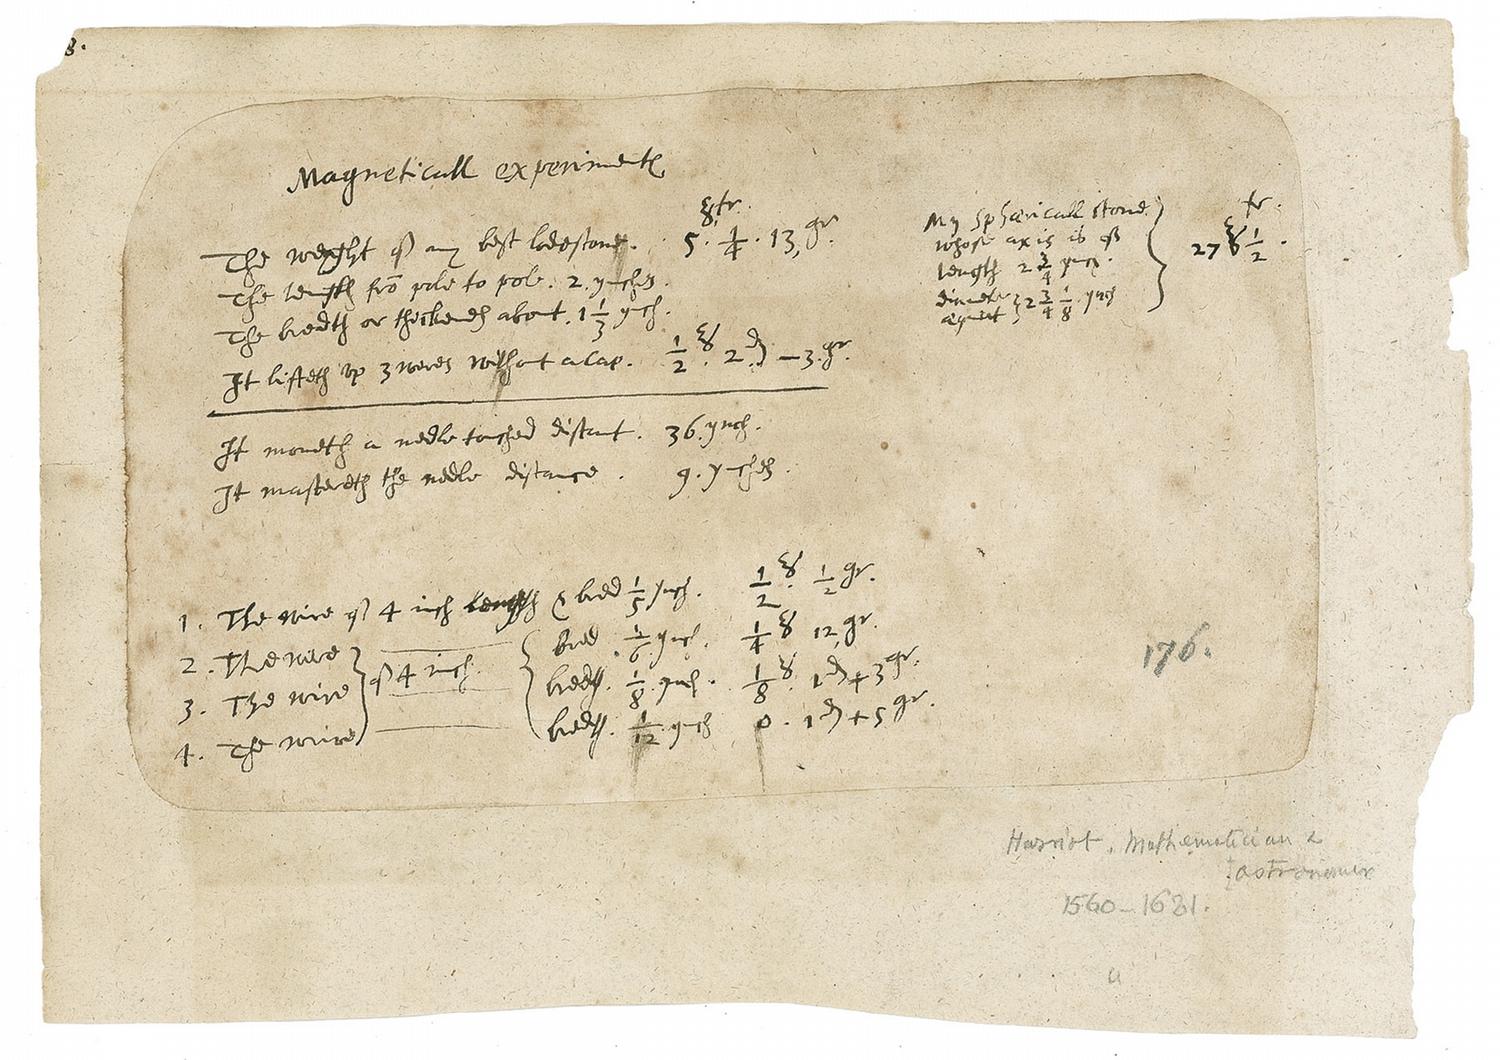 8.
Magneticall experiments
℥ tr.
The weyght of my best lodestone. 5. 1/4. 13, gr.
The length frō pole to pole. 2. ynches.
The bredth or thickenes about. 1 1/3 ynch.
It lifteth vp 3 wires without a cap. 1/2 ℥. 2 ℈ — 3. gr.
It moueth a nedle touched distant. 36. ynch.
It mastereth the nedle distance. 9. ynches.
My sphæricall stone
whose axis is of
length 2 3/4 ynch.
diameter 2 3/4 1/8 ynch
æquat
tr.
27 ℥ 1/2.
1. The wire of 4 inch length & bred 1/5 ynch. 1/2 ℥. 1/2 gr.
2. The wire bred 1/6 ynch. 1/4 ℥ 12, gr.
3. The wire of 4 inch. bredth. 1/8 ynch. 1/8 ℥. 1 ℈ + 3 gr.
4. The wire bredth. 1/12 ynch 0. 1 ℈ + 5 gr.
176.
Harriot. Mathematician &
astronomer
1560–1621.